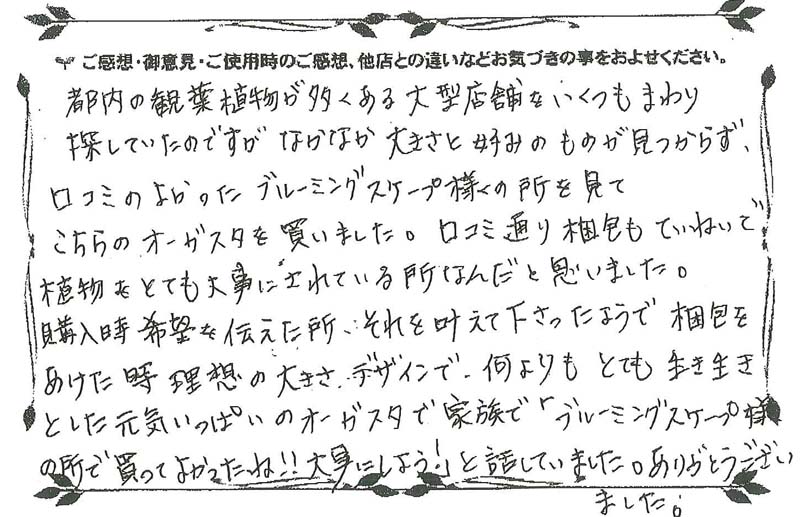 ご感想・御意見・ご使用時のご感想、他店との違いなどお気づきの事をおよせください。
都内の観葉植物が多くある大型店舗をいくつもまわり
探していたのですがなかなか大きさと好みのものが見つからず、
口コミのよかったブルーミングスケープ様の所を見て
こちらのオーガスタを買いました。口コミ通り梱包もていねいで
植物をとても大事にされている所なんだと思いました。
購入時希望を伝えた所、それを叶えて下さったようで梱包を
あけた時理想の大きさ、デザインで、何よりもとても生き生き
とした元気いっぱいのオーガスタで家族で「ブルーミングスケープ様
の所で買ってよかったね!!大事にしよう!」と話していました。ありがとうござい
ました。